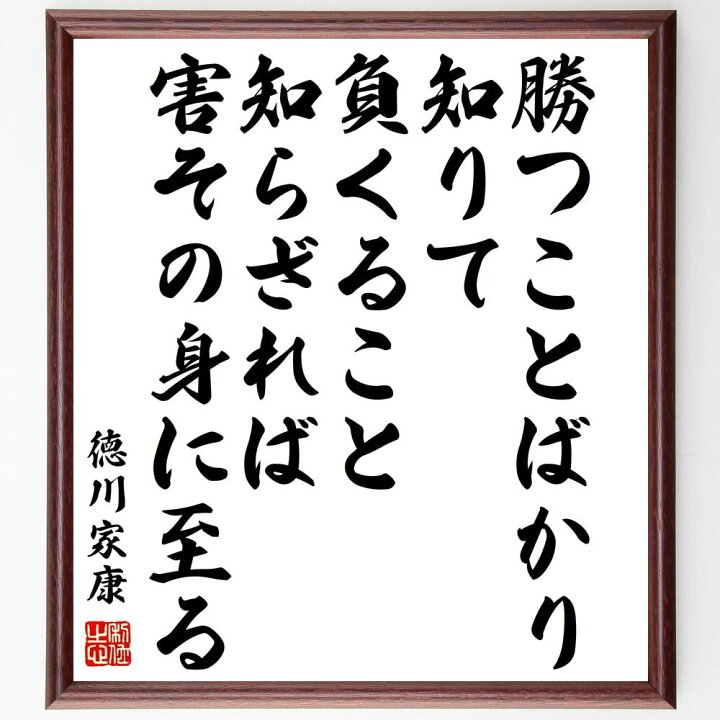 勝つことばかり
知りて
負くること
知らざれば
害その身に至る
徳川家康